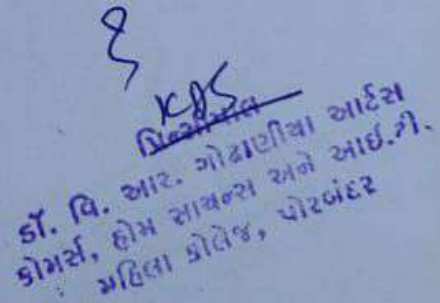 પ્રિન્સીપાલ
ડૉ. વિ. આર. ગોઢાણીયા આર્ટસ
કોમર્સ, હોમ સાયન્સ અને આઈ.ટી.
મહિલા કોલેજ, પોરબંદર